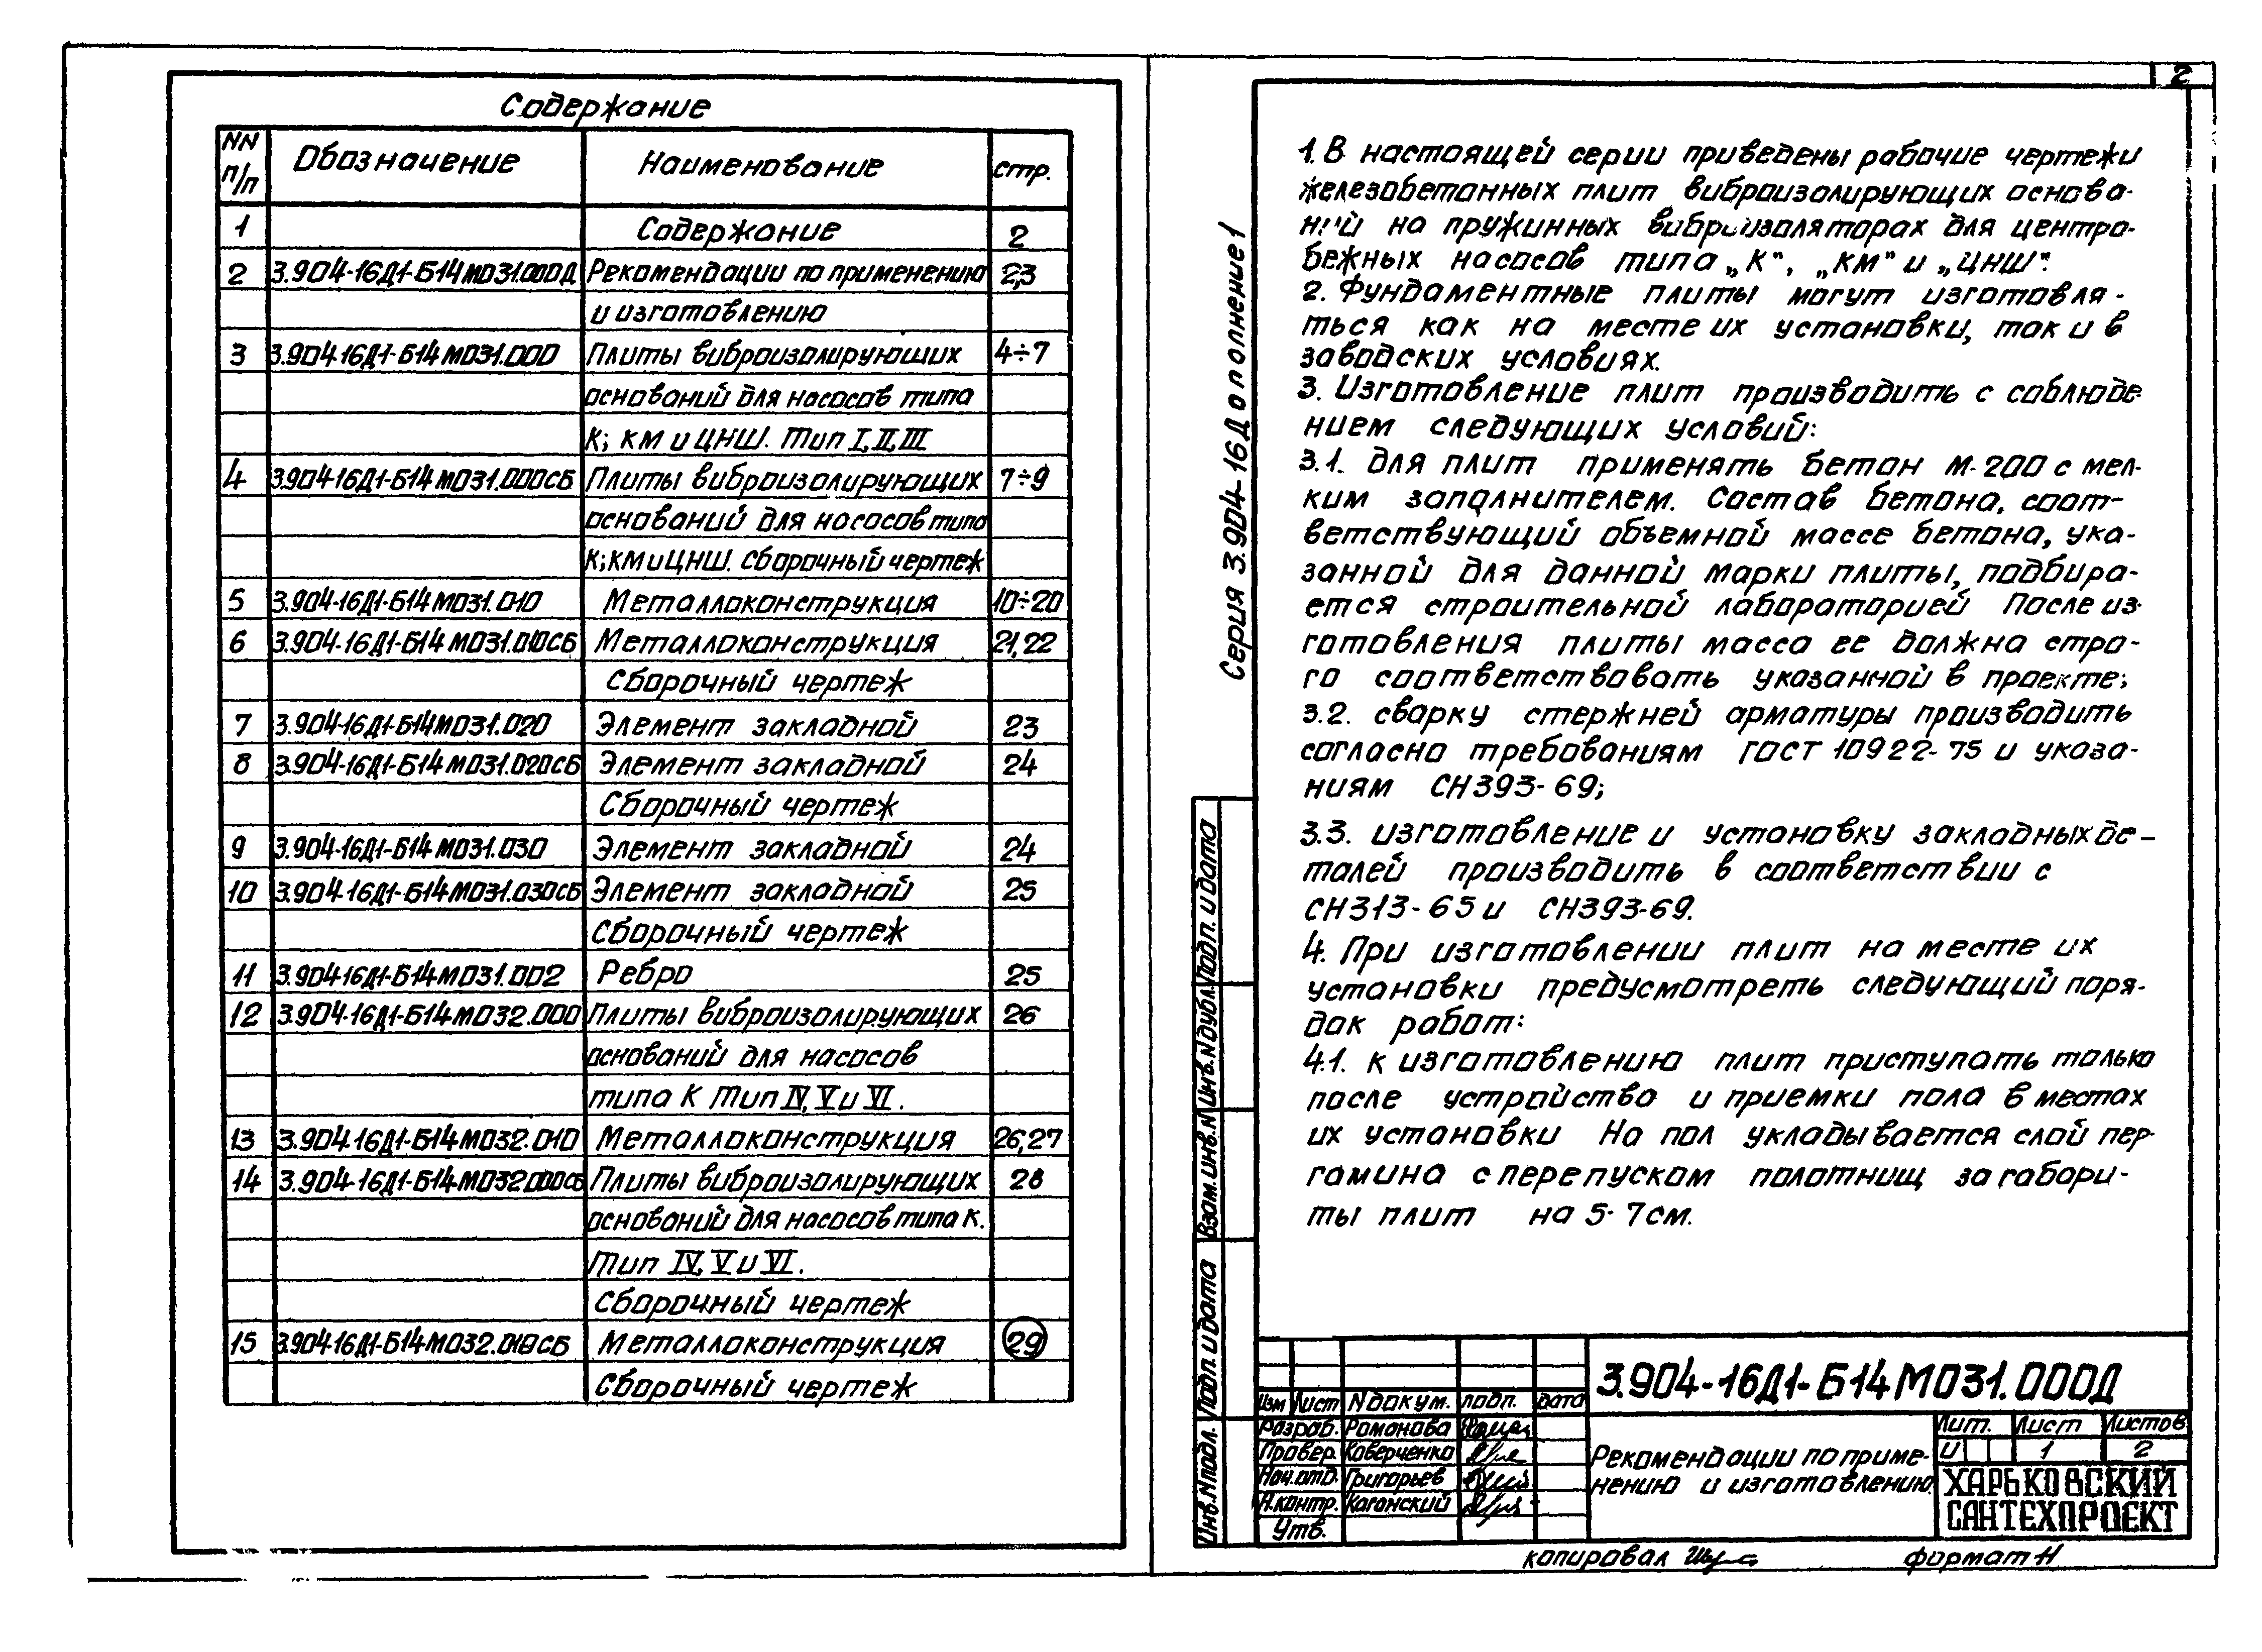 2
Содержание
NN п/п Обозначение Наименование стр.
1 Содержание 2
2 3.904-16Д1-Б14М031.000Д Рекомендации по применению 2,3
и изготовлению
3 3.904-16Д1-Б14М031.000 Плиты виброизолирующих 4÷7
оснований для насосов типа
К; КМ и ЦНШ. Тип I, II, III
4 3.904-16Д1-Б14М031.000СБ Плиты виброизолирующих 7÷9
оснований для насосов типа
К; КМ и ЦНШ. Сборочный чертеж
5 3.904-16Д1-Б14М031.010 Металлоконструкция 10÷20
6 3.904-16Д1-Б14М031.010СБ Металлоконструкция 21,22
Сборочный чертеж
7 3.904-16Д1-Б14М031.020 Элемент закладной 23
8 3.904-16Д1-Б14М031.020СБ Элемент закладной 24
Сборочный чертеж
9 3.904-16Д1-Б14М031.030 Элемент закладной 24
10 3.904-16Д1-Б14М031.030СБ Элемент закладной 25
Сборочный чертеж
11 3.904-16Д1-Б14М031.002 Ребро 25
12 3.904-16Д1-Б14М032.000 Плиты виброизолирующих 26
оснований для насосов
типа К Тип IV, V и VI.
13 3.904-16Д1-Б14М032.010 Металлоконструкция 26,27
14 3.904-16Д1-Б14М032.000СБ Плиты виброизолирующих 28
оснований для насосов типа К.
Тип IV, V и VI.
Сборочный чертеж
15 3.904-16Д1-Б14М032.010СБ Металлоконструкция 29
Сборочный чертеж
Серия 3.904-16Дополнение1
1. В настоящей серии приведены рабочие чертежи
железобетонных плит виброизолирующих основа-
ний на пружинных виброизоляторах для центро-
бежных насосов типа „К", „КМ" и „ЦНШ".
2. Фундаментные плиты могут изготовля-
ться как на месте их установки, так и в
заводских условиях.
3. Изготовление плит производить с соблюде
нием следующих условий:
3.1. Для плит применять бетон М-200 с мел-
ким заполнителем. Состав бетона, соот-
ветствующий объемной массе бетона, ука-
занной для данной марки плиты, подбира-
ется строительной лабораторией После из-
готовления плиты масса ее должна стро-
го соответствовать указанной в проекте;
3.2. сварку стержней арматуры производить
согласно требованиям ГОСТ 10922-75 и указа-
ниям СН393-69;
3.3. изготовление и установку закладных де-
талей производить в соответствии с
СН313-65 и СН393-69.
4. При изготовлении плит на месте их
установки предусмотреть следующий поря-
док работ:
4.1. к изготовлению плит приступать только
после устройства и приемки пола в местах
их установки На пол укладывается слой пер-
гамина с перепуском полотнищ за габори-
ты плит на 5-7см.
Инв.Nподл. Подп. и дата Взам.инв.N Инв.Nдубл. Подп. и дата
3.904-16Д1-Б14М031.000Д
Изм Лист Nдокум. подп. дата
Разраб. Романова
Провер. Коверченко
Нач.отд. Григорьев
Н.контр. Каганский
Утв.
Рекомендации по приме-
нению и изготовлению.
Лит. Лист Листов
И 1 2
ХАРЬКОВСКИЙ
САНТЕХПРОЕКТ
копировал
формат Н